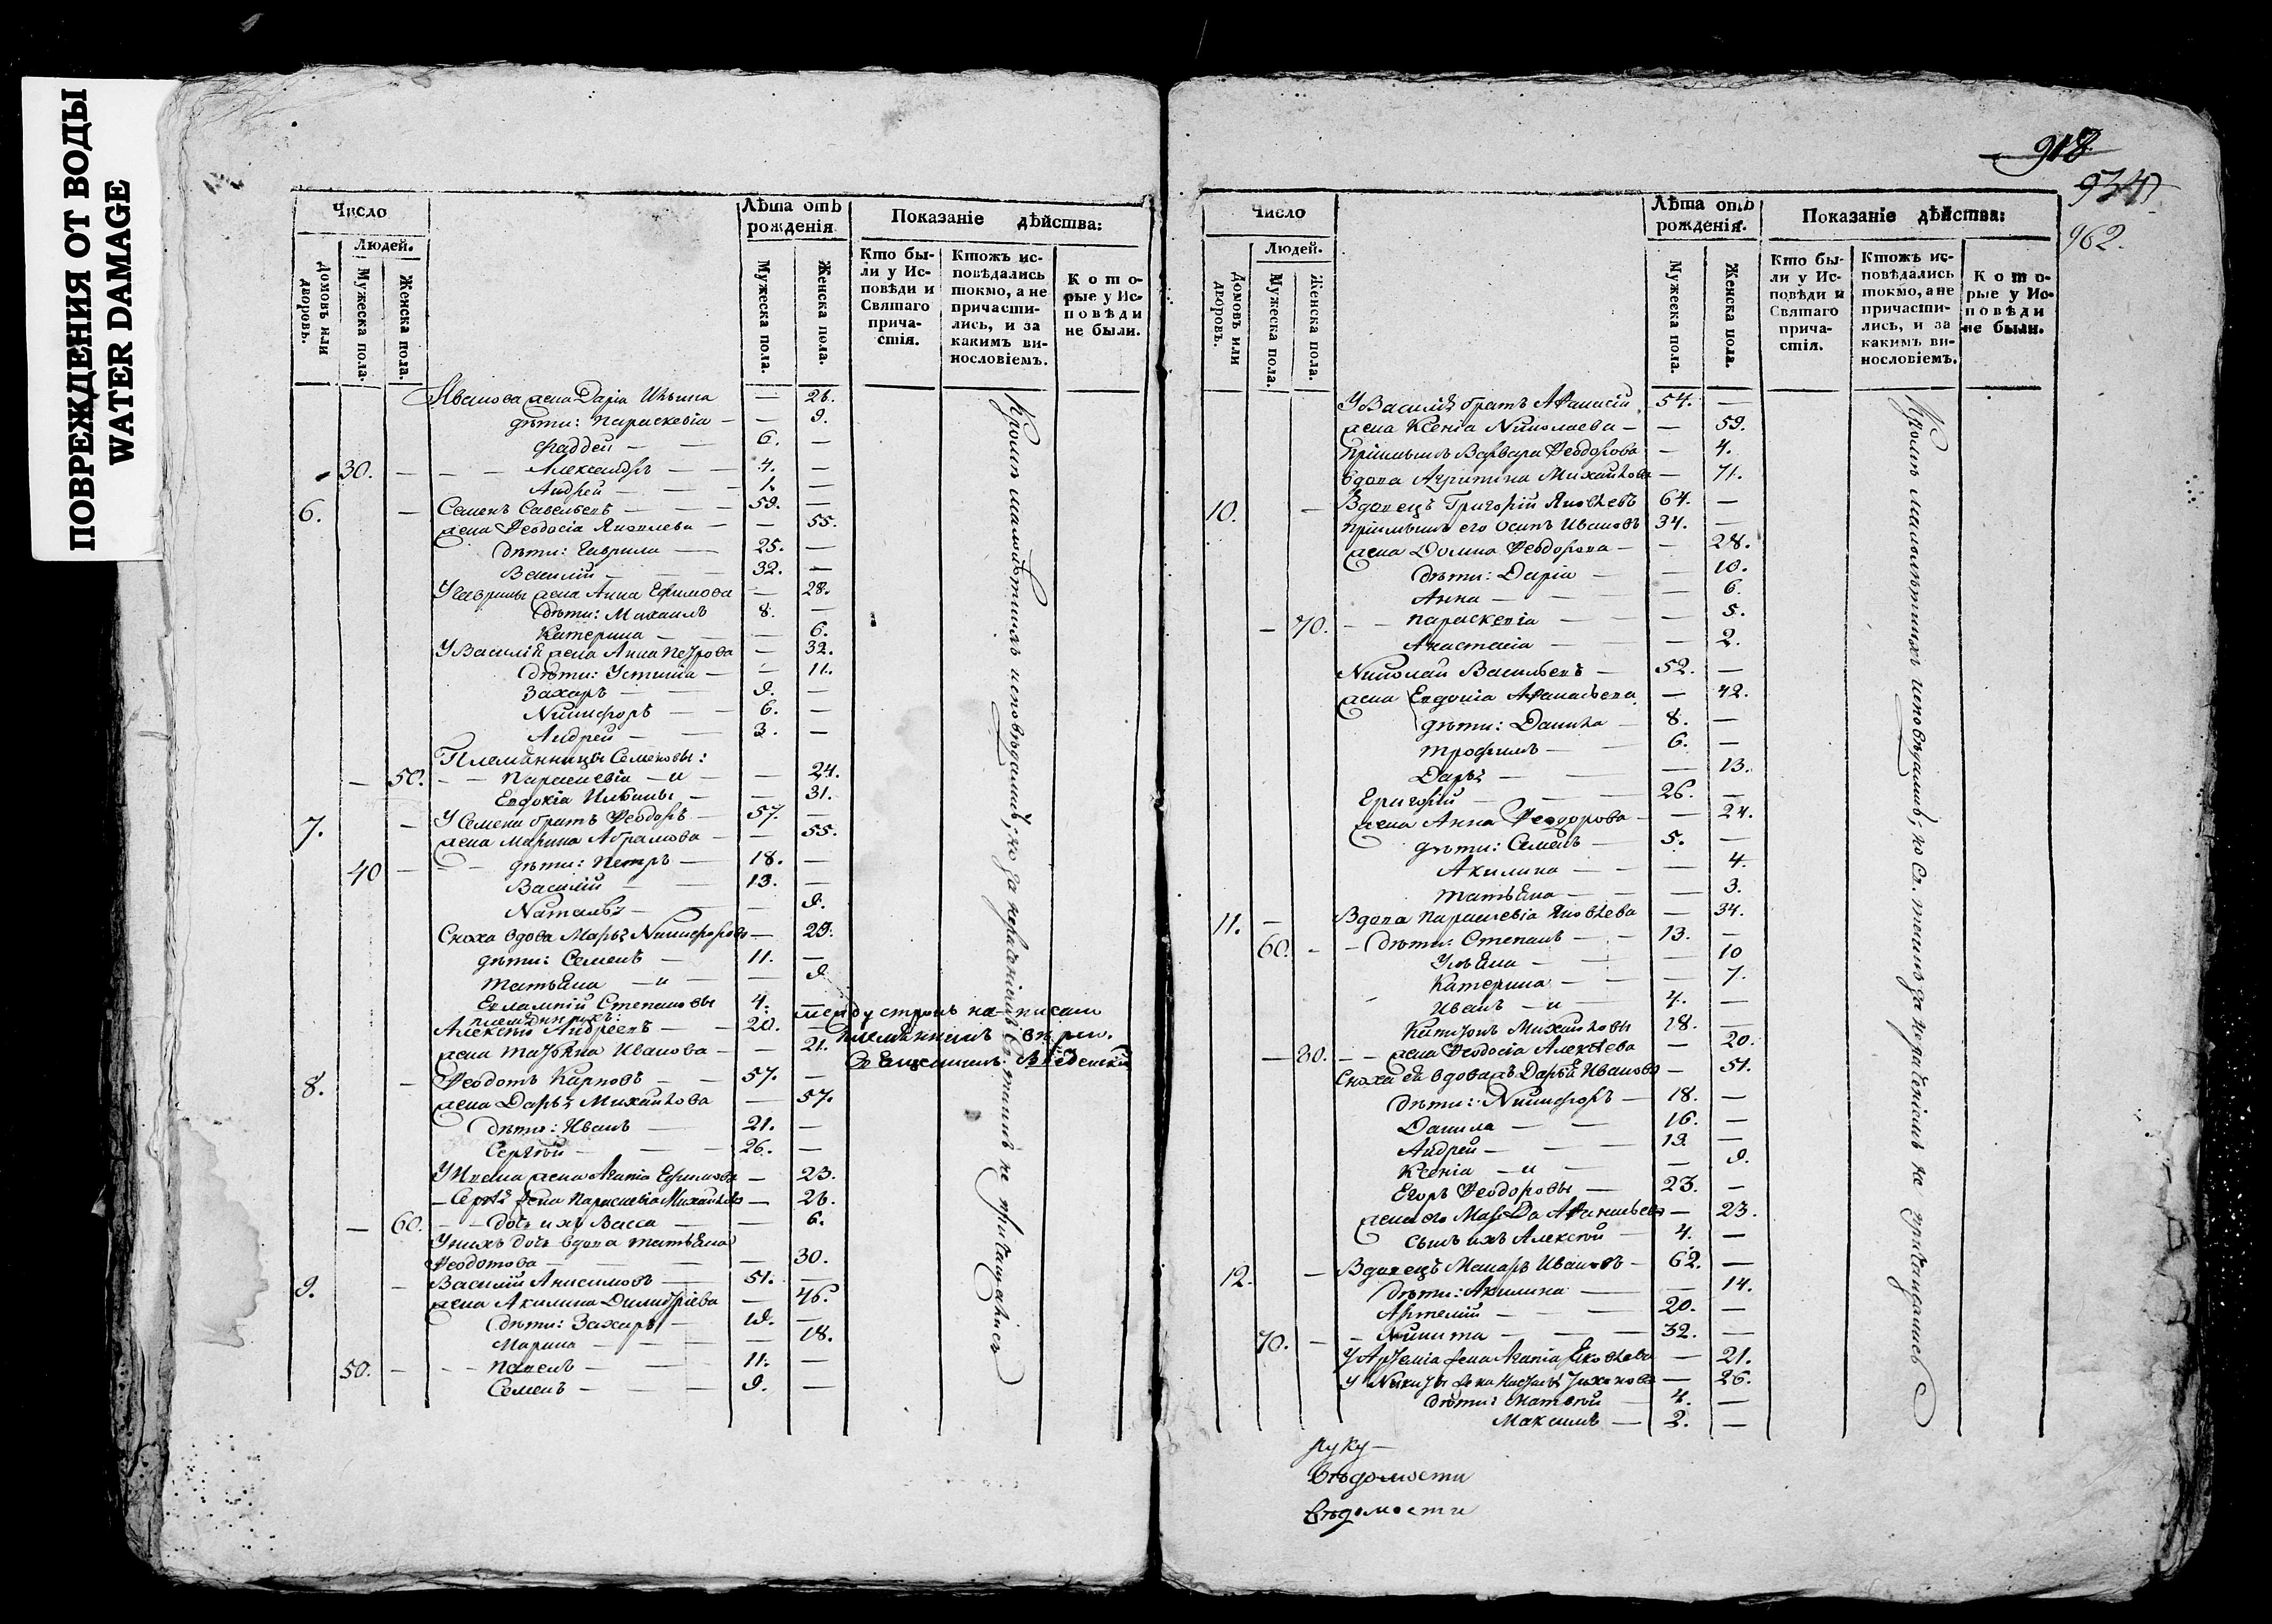 ПОВРЕЖДЕНИЯ ОТ ВОДЫ
WATER DAMAGE
Число
Людей.
Домовъ или дворовъ.
Мужеска пола.
Женска пола.
Лѣта отъ рожденія
Мужеска пола.
Женска пола.
Показаніе дѣйства:
Кто были у Исповѣди и Святаго причастія.
Ктожъ исповѣдались токмо, а не причастились, и за какимъ винословіемъ.
Которые у Исповѣди не были.
Иванова жена Дарія Ильина — 26.
дѣти: Параскевія — — 9.
Фаддей — 6. —
30. — Александръ — — 4. —
Андрей — — 1. —
6. — Семенъ Савельевъ — — 59. —
жена Ѳеодосія Яковлева — — 55.
дѣти: Гаврила — 25. —
Василій — — 32. —
У Гаврилы жена Анна Ефимова — 28.
дѣти: Михаилъ 8. —
Катерина — — 6.
У Василія жена Анна Петрова — 32.
дѣти: Устинія — — 11.
Захаръ — — 9. —
Никифоръ — — 6. —
Андрей — — 3. —
Племянницы Семеновы:
— 50. — Параскевія — и — — 24.
Евдокія Ильины — — 31.
7. — У Семена братъ Ѳеодоръ — 57. —
жена Марина Абрамова — — 55.
40 — — дѣти: Петръ — 18. —
Василій — — 13. —
Наталья — — 9.
Сноха вдова Марья Никифорова — 29.
дѣти: Семенъ — 11. —
Татьяна — и — — 9
Евлампій Степановы 4. —
племянникъ:
Алексѣй Андреевъ — — 20. —
жена Татьяна Иванова — — 21.
между строкъ написан
племянникъ вѣрно.
Священникъ Введенскій
8. — Ѳеодотъ Карповъ — — 57. —
жена Дарья Михайлова — 57.
дѣти: Иванъ — 21. —
Сергѣй — — 26. —
У Ивана жена Агапія Ефимова — 23.
— Сергѣя жена Параскевія Михайлова — 26.
— 60. — — дочь ихъ Васса — — 6.
У нихъ дочь вдова Татьяна
Ѳеодотова — — 30.
9. — Василій Анисимовъ — 51. —
жена Акилина Димитріева — 46.
дѣти: Захаръ — 19. —
Марина — — 18.
50. — — Павелъ — 11. —
Семенъ — — 9. —
Кромѣ малолѣтнихъ исповѣдались, но за нераченіемъ Св. таинъ не причащались
918
934
962.
Число
Людей.
Домовъ или дворовъ.
Мужеска пола.
Женска пола.
Лѣта отъ рожденія.
Мужеска пола.
Женска пола.
Показаніе дѣйства:
Кто были у Исповѣди и Святаго причастія.
Ктожъ исповѣдались токмо, а не причастились, и за какимъ винословіемъ.
Которые у Исповѣди не были.
У Василія братъ Аѳанасій 54. —
жена Ксенія Николаева — — 59.
Пріимышъ Варвара Ѳеодорова — 4.
вдова Агрипина Михайлова — 71.
10. — Вдовецъ Григорій Яковлевъ 64. —
пріимышъ его Осипъ Ивановъ 34. —
жена Домна Ѳеодорова — — 28.
дѣти: Дарія — — 10.
Анна — — 6.
— 70. — — Параскевія — — 5.
Анастасія — — 2.
Николай Васильевъ — 52. —
жена Евдокія Аѳанасьева — 42.
дѣти: Данила — 8. —
Трофимъ — 6. —
Дарья — — 13.
Григорій — 26. —
жена Анна Ѳеодорова — — 24.
дѣти: Семенъ 5. —
Акилина — — 4.
Татьяна — — 3.
11. — Вдова Параскевія Яковлева — 34.
60. — — дѣти: Степанъ — 13. —
Ульяна — — 10
Катерина — — 7.
Иванъ — и — 4. —
Михайловы 18. —
— 80. — — жена Ѳеодосія Алексѣева — 20.
Сноха ея вдова Дарья Иванова — 51.
дѣти: Никифоръ — 18. —
Данила — — 16. —
Андрей — — 13. —
Ксенія — и — — 9.
Егоръ Ѳеодоровы — 23. —
жена его Аѳанасьева — 23.
сынъ ихъ Алексѣй — 4. —
12. — Вдовецъ Макаръ Ивановъ — 62. —
дѣти: Акилина — — 14.
Артемій — — 20. —
70. — — Никита — — 32. —
У Артемія жена Агапія Яковлева — 21.
У Никиты жена Наталья Тихонова — 26.
дѣти: Матвѣй — 4. —
Максимъ — 2. —
Кромѣ малолѣтнихъ исповѣдались, но Св. таинъ за нераченіемъ не причащались
руку —
вѣдомости
вѣдомости